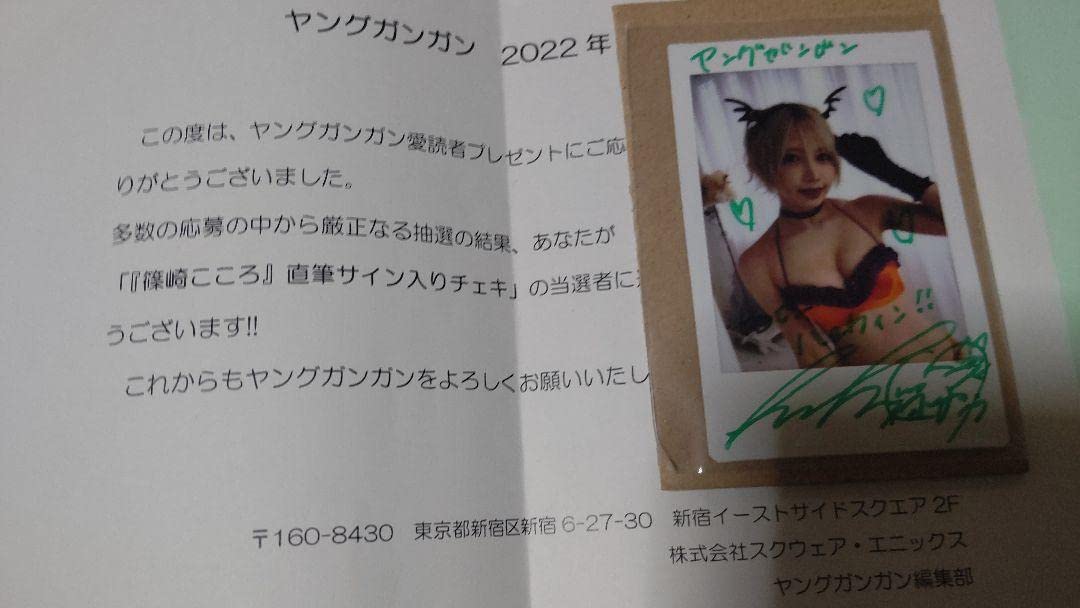 ヤングガンガン 2022年
この度は、ヤングガンガン愛読者プレゼントにご応
りがとうございました。
多数の応募の中から厳正なる抽選の結果、あなたが
「『篠崎こころ』直筆サイン入りチェキ」の当選者に
うございます!!
これからもヤングガンガンをよろしくお願いいたし
〒160-8430 東京都新宿区新宿6-27-30 新宿イーストサイドスクエア2F
株式会社スクウェア・エニックス
ヤングガンガン編集部
ヤングガンガン
ハロウィン!!